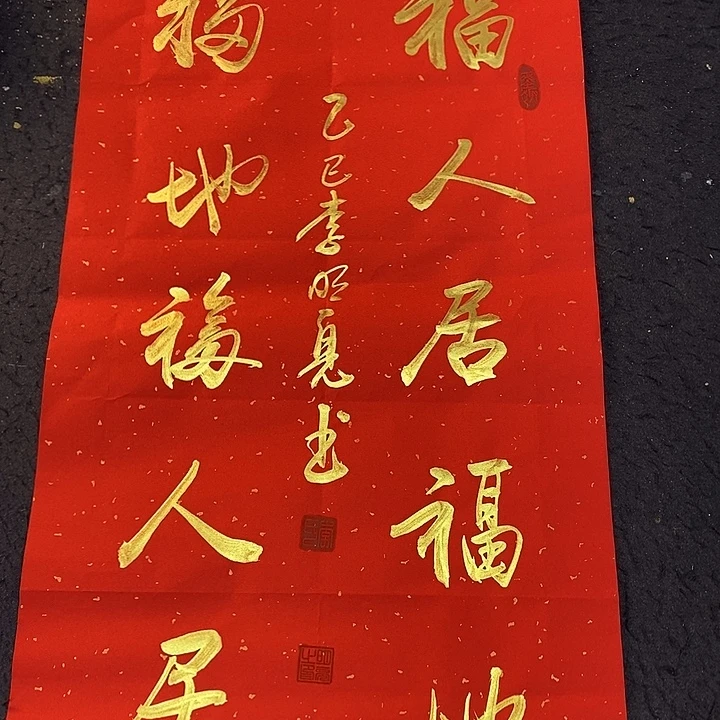 福人居福地
乙巳李明亮书
福地福人居